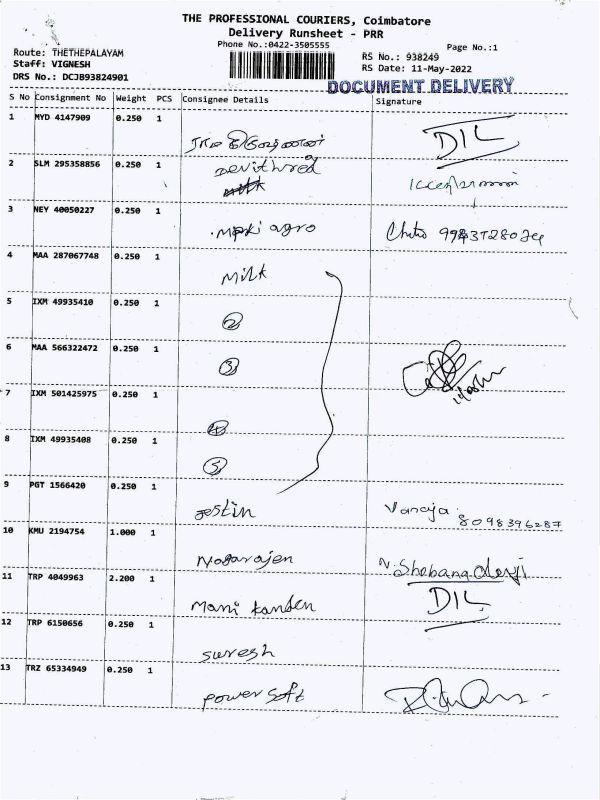 THE PROFESSIONAL COURIERS, Coimbatore
Delivery Runsheet - PRR
Phone No.:0422-3505555
Page No.:1
Route: THETHEPALAYAM
RS No.: 938249
Staff: VIGNESH
RS Date: 11-May-2022
DRS No.: DCJB93824901
DOCUMENT DELIVERY
S No Consignment No Weight PCS Consignee Details Signature
1 MYD 4147909 0.250 1
DIL
2 SLM 295358856 0.250 1
3 NEY 40050227 0.250 1
agro
4 MAA 287067748 0.250 1
Milk
5 IXM 49935410 0.250 1
2
6 MAA 566322472 0.250 1
3
7 IXM 501425975 0.250 1
4
8 IXM 49935408 0.250 1
5
9 PGT 1566420 0.250 1
Jestin Vanaja 8098396287
10 KMU 2194754 1.000 1
Nagarajen N. Shobana
11 TRP 4049963 2.200 1
Mani kanden DIL
12 TRP 6150656 0.250 1
suresh
13 TRZ 65334949 0.250 1
power soft